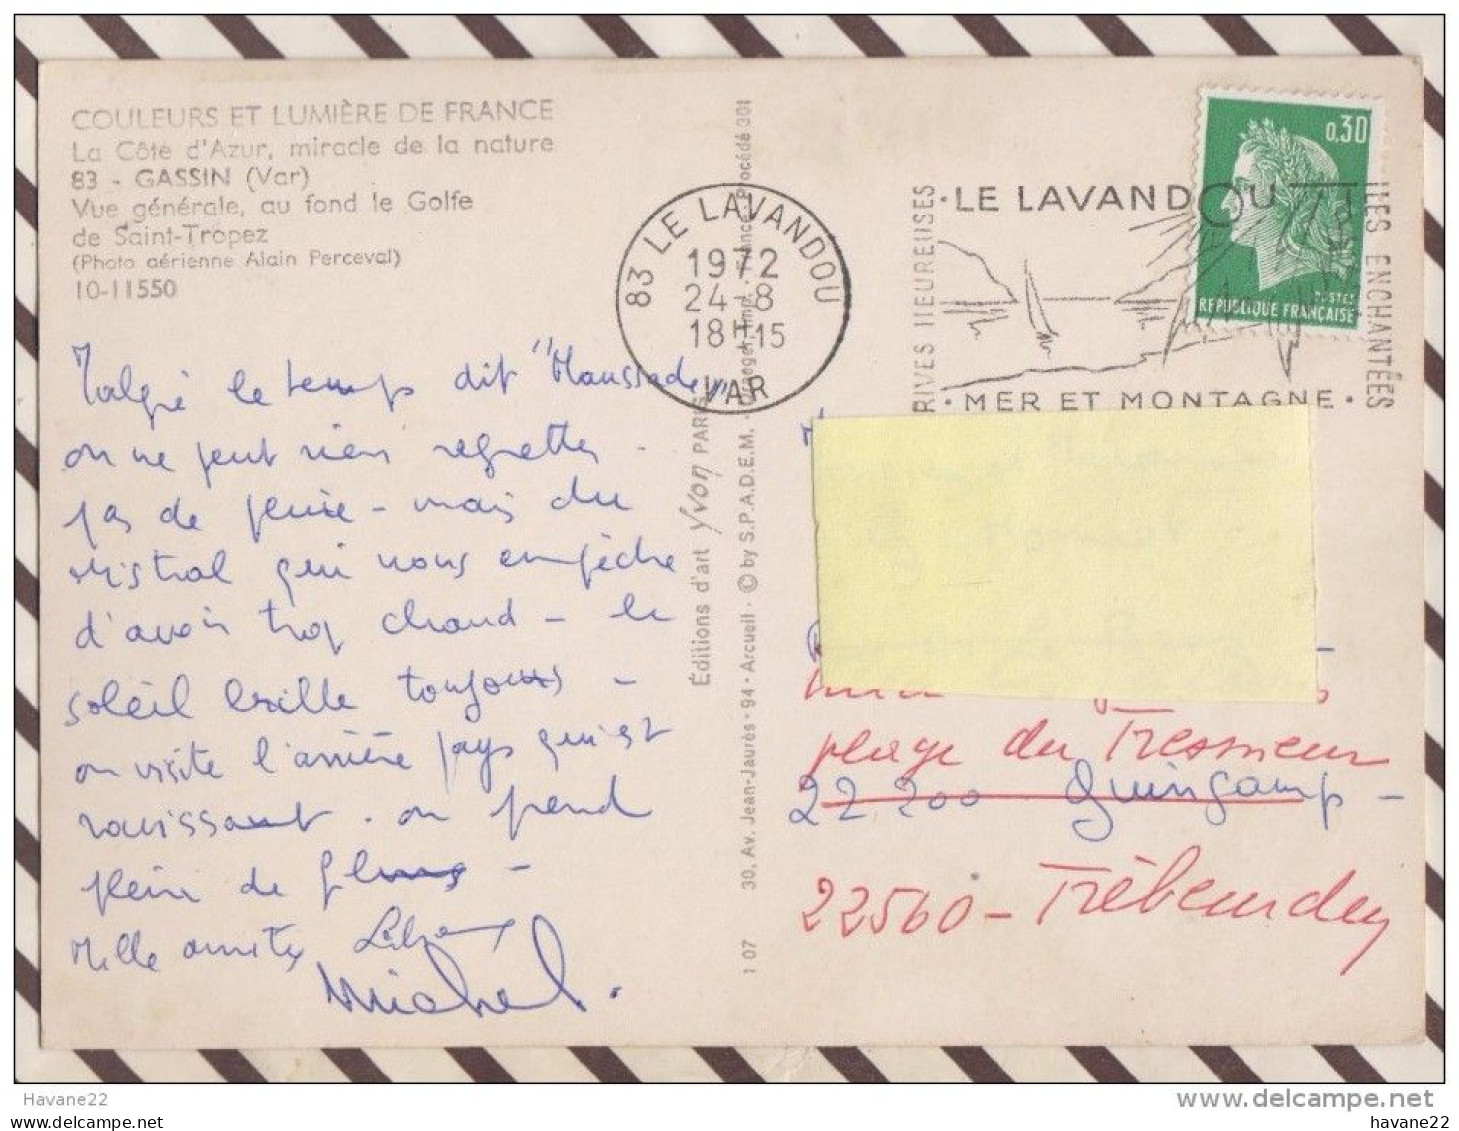 COULEURS ET LUMIÈRE DE FRANCE
La Côte d'Azur, miracle de la nature
83 - GASSIN (Var)
Vue générale, au fond le Golfe
de Saint-Tropez
(Photo aérienne Alain Perceval)
10-11550
Malgré le temps dit "Maussade"
on ne peut rien regretter -
pas de pluie - mais du
Mistral qui nous empêche
d'avoir trop chaud - le
soleil brille toujours -
on visite l'arrière pays qui est
ravissant. on prend
plein de
Mille amitiés
Michel.
Éditions d'art Yvon PARIS
30, Av. Jean-Jaurès - 94 - Arcueil - © by S.P.A.D.E.M.
Procédé 301
1 07
83 LE LAVANDOU
1972
24-8
18H15
VAR
RIVES HEUREUSES
• LE LAVANDOU
• MER ET MONTAGNE •
ENCHANTÉES
0,30
POSTES
REPUBLIQUE FRANÇAISE
plage du Tresmeur
22 200 Guingamp -
22560 - Trébeurden
Havane22
www.delcampe.net
havane22